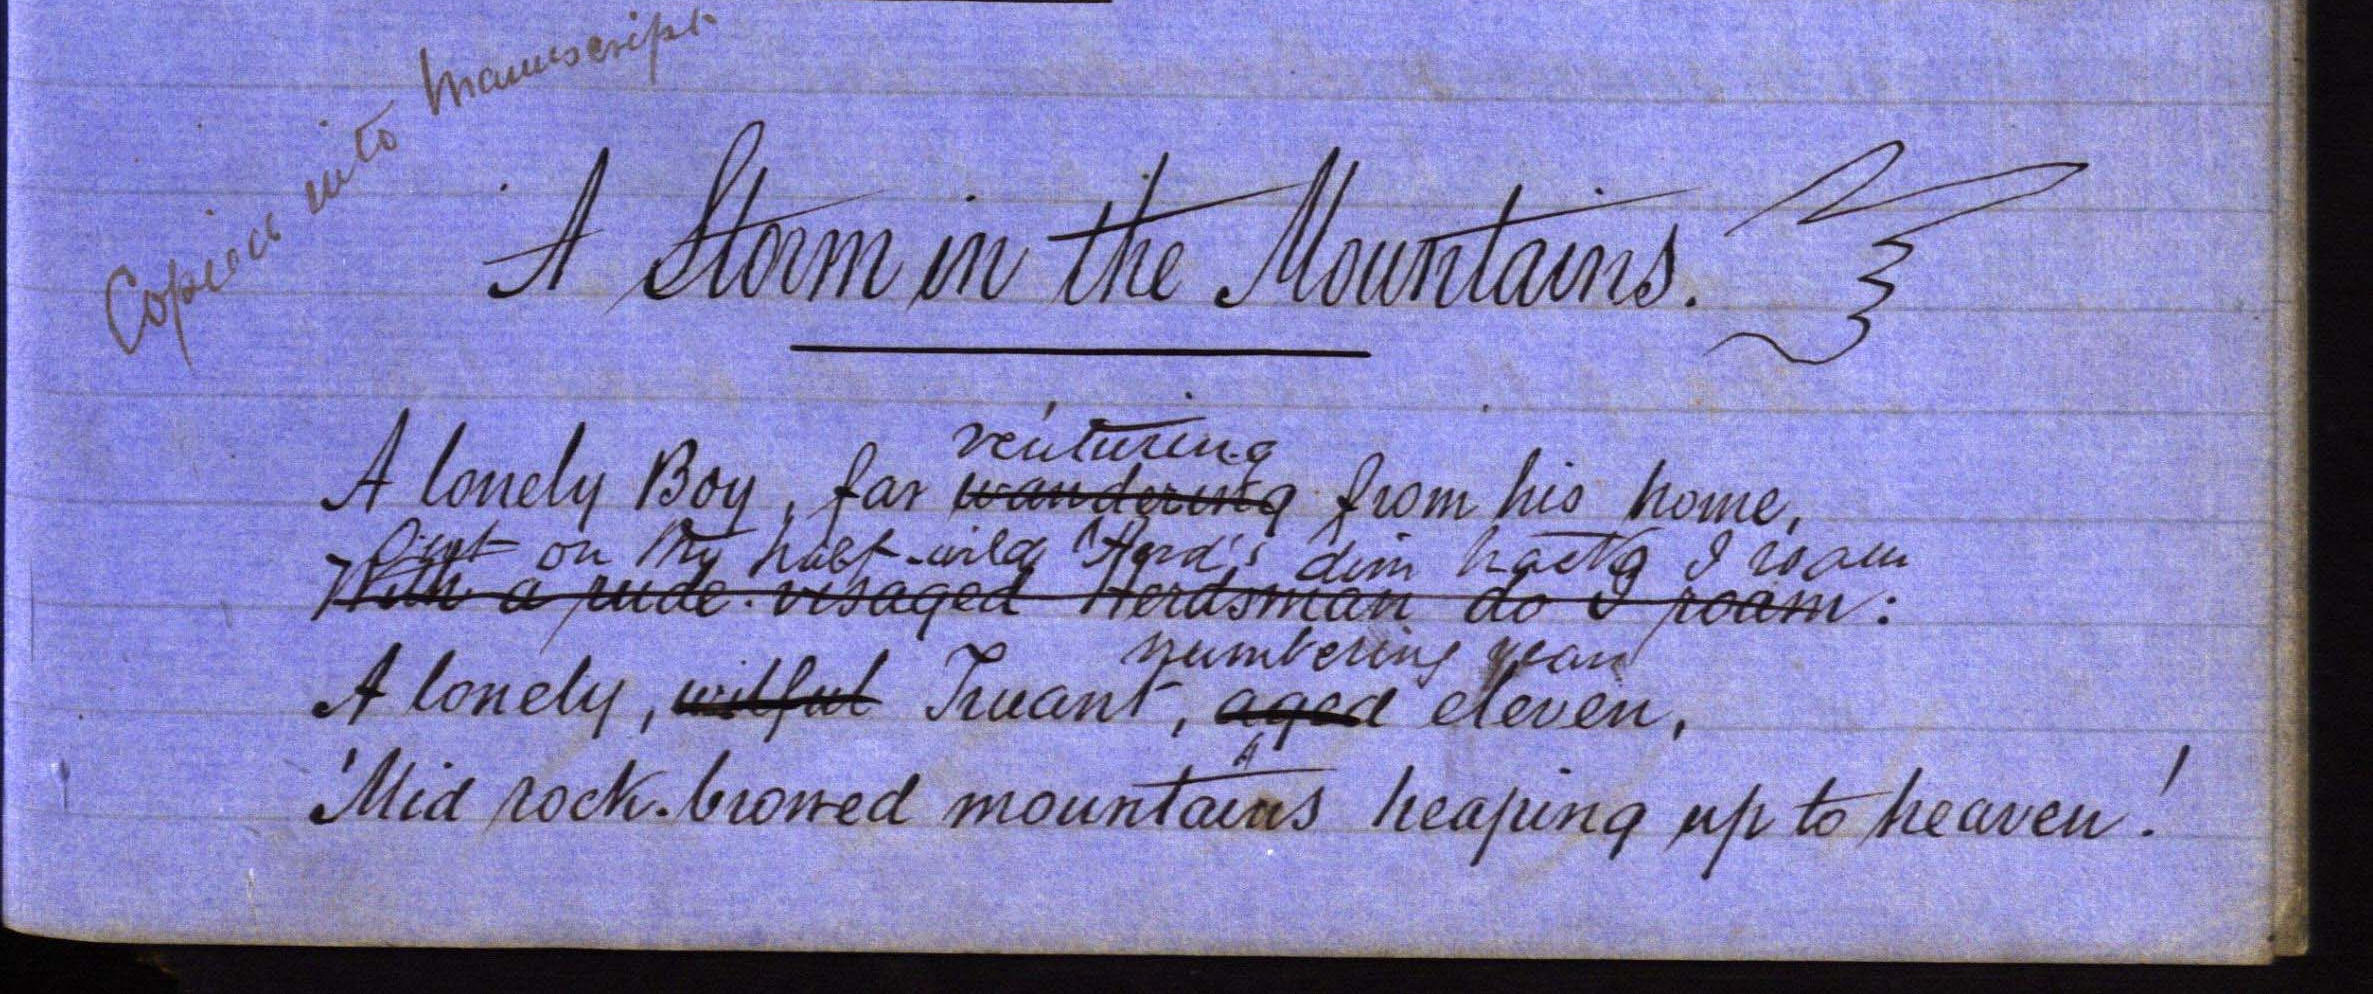 Copied into Manuscript
A Storm in the Mountains.
venturing
A lonely Boy, far wandering from his home,
Out on the half-wild Herd's dim tracks I roam
With a rude-visaged Herdsman do I roam:
numbering years
A lonely, wilful Truant, aged eleven,
'Mid rock-browed mountains heaping up to heaven!